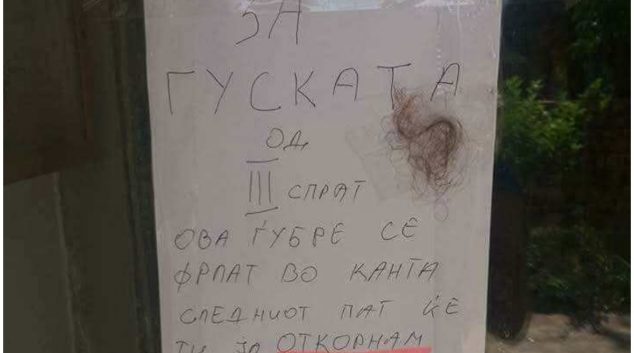 ЗА
ГУСКАТА
ОД
III СПРАТ
ОВА ЃУБРЕ СЕ
ФРЛАТ ВО КАНТА
СЛЕДНИОТ ПАТ ЌЕ
ТИ ЈА ОТКОРНАМ